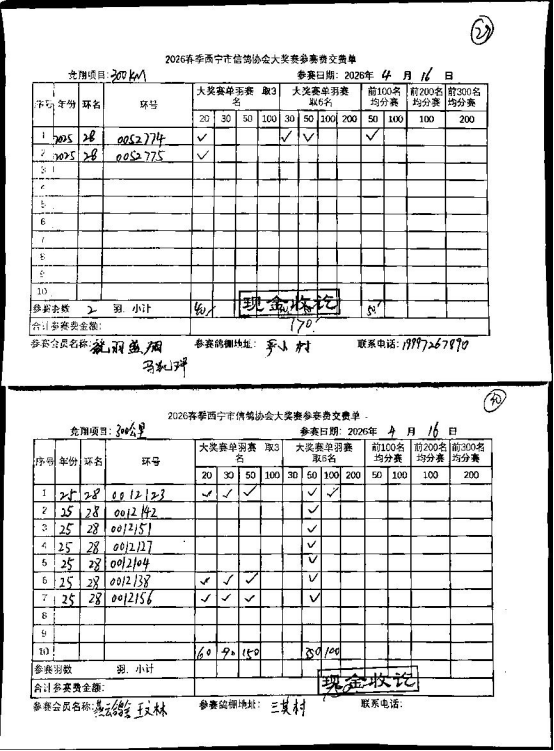 29
2026春季西宁市信鸽协会大奖赛参赛费交费单
竞翔项目：300KM 参赛日期：2026年 4 月 16 日
序号 年份 环名 环号 大奖赛单羽赛 取3名 大奖赛单羽赛 取6名 前100名均分赛 前200名均分赛 前300名均分赛
20 30 50 100 30 50 100 200 50 100 100 200
1 2025 28 0052774 ✓ ✓ ✓ ✓
2 2025 28 0052775 ✓
3
4
5
6
7
8
9
10
参赛羽数 2 羽 小计 40 50
现金收讫
合计参赛费金额： 170
参赛会员名称： 参赛鸽棚地址： 联系电话：19997267890
40
2026春季西宁市信鸽协会大奖赛参赛费交费单
竞翔项目：300公里 参赛日期：2026年 4 月 16 日
序号 年份 环名 环号 大奖赛单羽赛 取3名 大奖赛单羽赛 取6名 前100名均分赛 前200名均分赛 前300名均分赛
20 30 50 100 30 50 100 200 50 100 100 200
1 25 28 0012123 ✓ ✓ ✓ ✓ ✓
2 25 28 0012142 ✓
3 25 28 0012151 ✓
4 25 28 0012127 ✓
5 25 28 0012104 ✓
6 25 28 0012138 ✓ ✓ ✓ ✓
7 25 28 0012156 ✓ ✓ ✓ ✓
8
9
10 60 90 150 350 100
参赛羽数 羽 小计
合计参赛费金额：
现金收讫
参赛会员名称： 王文林 参赛鸽棚地址： 三其村 联系电话：